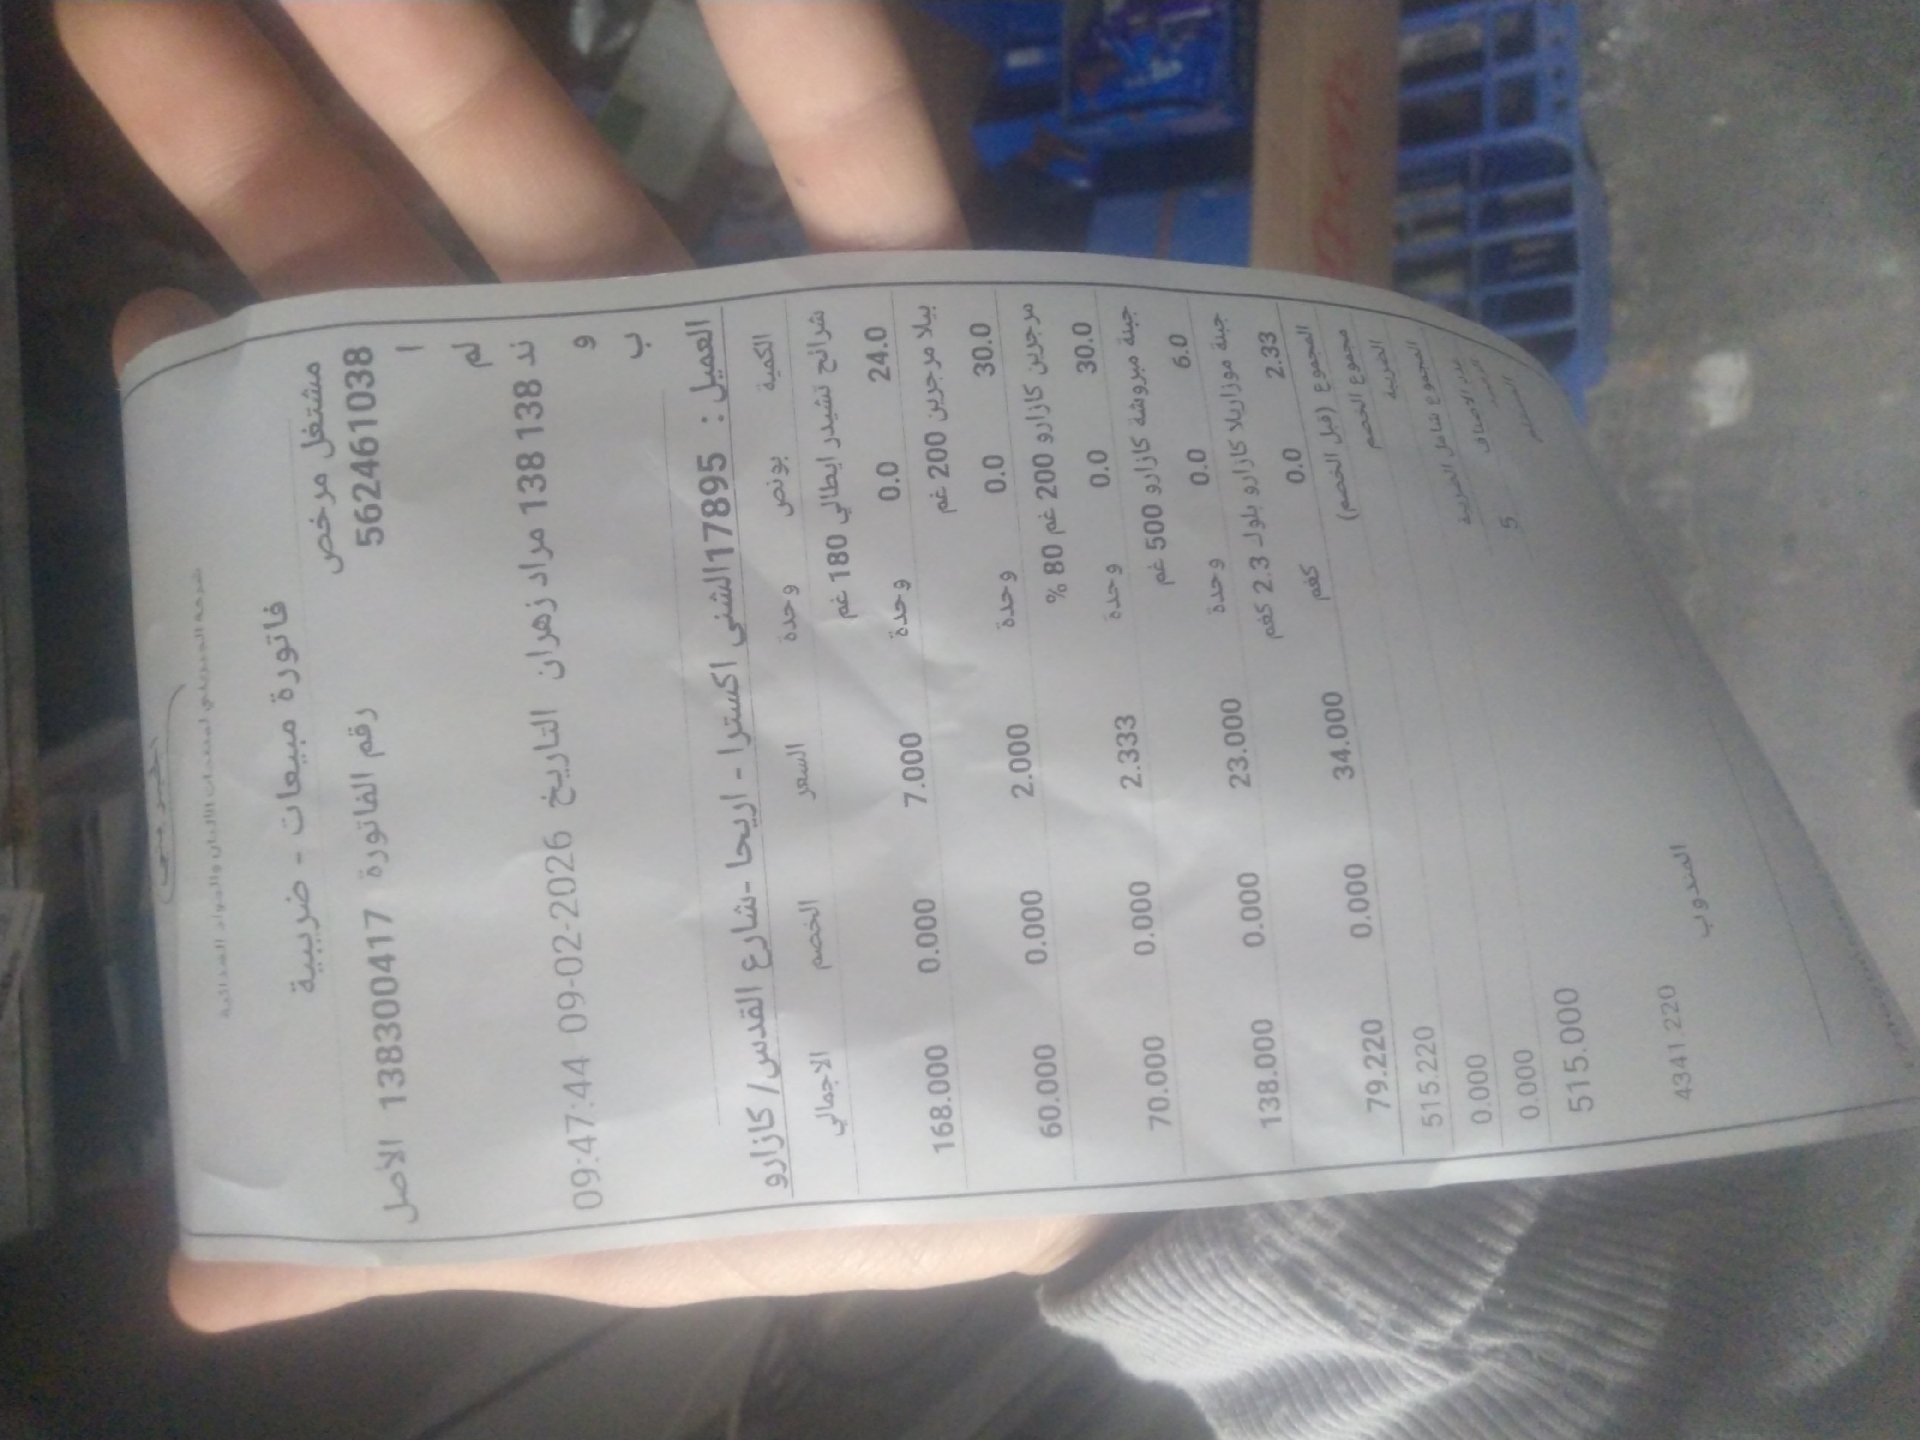 فاتورة مبيعات - ضريبية
مشتغل مرخص
562461038 رقم الفاتورة 138300417 الاصل
ا
لم
ند 138 138 مراد زهران التاريخ 09-02-2026 09:47:44
و
ب
العميل : 17895الشني اكسترا - اريحا -شارع القدس/ كازارو
الكمية بونص وحدة السعر الخصم الاجمالي
شرائح تشيدر ايطالي 180 غم
24.0 0.0 وحدة 7.000 0.000 168.000
بيلا مرجرين 200 غم
30.0 0.0 وحدة 2.000 0.000 60.000
مرجرين كازارو 200 غم 80 %
30.0 0.0 وحدة 2.333 0.000 70.000
جبنة مبروشة كازارو 500 غم
6.0 0.0 وحدة 23.000 0.000 138.000
جبنة موزاريلا كازارو بلوك 2.3 كغم
2.33 0.0 كغم 34.000 0.000 79.220
المجموع (قبل الخصم) 515.220
مجموع الخصم 0.000
الضريبة 0.000
المجموع شامل الضريبة 515.000
عدد الاصناف 5
الرصيد 4341.220
المستلم المندوب